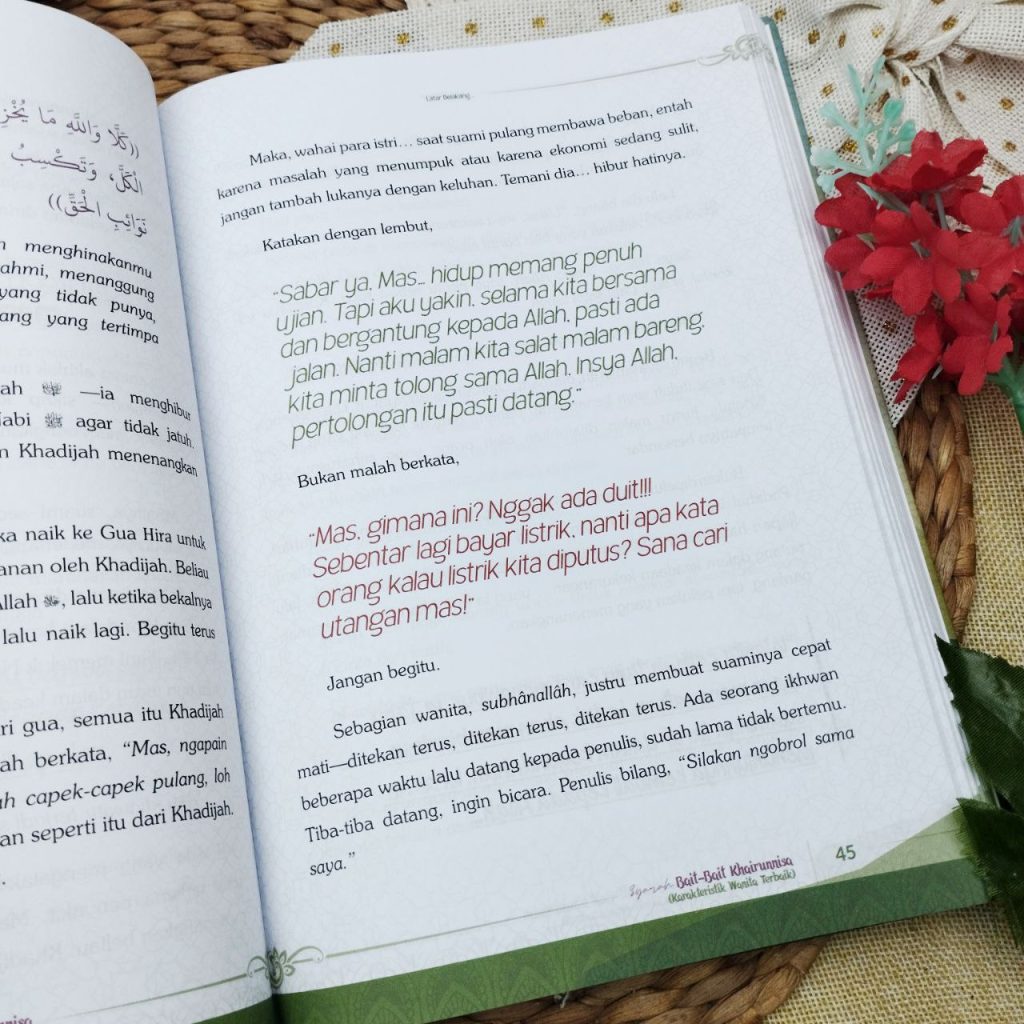 ((كَلَّا وَاللَّهِ مَا يُخْزِ
الْكَلَّ، وَتَكْسِبُ
نَوَائِبِ الْحَقِّ))
menghinakanmu
ahmi, menanggung
yang tidak punya,
ang yang tertimpa
ah ﷺ —ia menghibur
Nabi ﷺ agar tidak jatuh.
n Khadijah menenangkan
ka naik ke Gua Hira untuk
anan oleh Khadijah. Beliau
Allah ﷺ, lalu ketika bekalnya
lalu naik lagi. Begitu terus
ri gua, semua itu Khadijah
ah berkata, “Mas, ngapain
ah capek-capek pulang, loh
an seperti itu dari Khadijah.
Latar Belakang...
Maka, wahai para istri… saat suami pulang membawa beban, entah
karena masalah yang menumpuk atau karena ekonomi sedang sulit,
jangan tambah lukanya dengan keluhan. Temani dia… hibur hatinya.
Katakan dengan lembut,
“Sabar ya, Mas… hidup memang penuh
ujian. Tapi aku yakin, selama kita bersama
dan bergantung kepada Allah, pasti ada
jalan. Nanti malam kita salat malam bareng,
kita minta tolong sama Allah. Insya Allah,
pertolongan itu pasti datang.”
Bukan malah berkata,
“Mas, gimana ini? Nggak ada duit!!!
Sebentar lagi bayar listrik, nanti apa kata
orang kalau listrik kita diputus? Sana cari
utangan mas!”
Jangan begitu.
Sebagian wanita, subhânallâh, justru membuat suaminya cepat
mati—ditekan terus, ditekan terus, ditekan terus. Ada seorang ikhwan
beberapa waktu lalu datang kepada penulis, sudah lama tidak bertemu.
Tiba-tiba datang, ingin bicara. Penulis bilang, “Silakan ngobrol sama
saya.”
Syarah Bait-Bait Khairunnisa
(Karakteristik Wanita Terbaik)
45